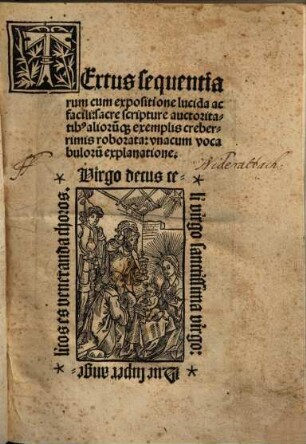 TExtus sequentia
rum cum expositione lucida ac
facili: sacre scripture auctorita-
tibꝰ alioruꝫ exemplis creber-
rimis roborata: vnacum voca
bulorū explanatione:
Niderattach.
Virgo decus ce-
li virgo sanctissima virgo:
Que super ange-
licos es veneranda choros.